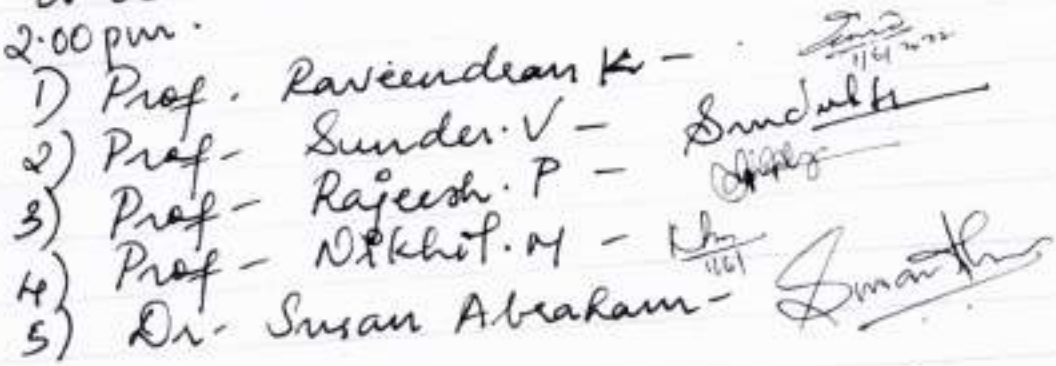 2.00 pm.
1) Prof. Raveendran K -
2) Prof - Sunder. V -
3) Prof - Rajeesh. P -
4) Prof - Nikhil. M -
5) Dr. Susan Abraham -